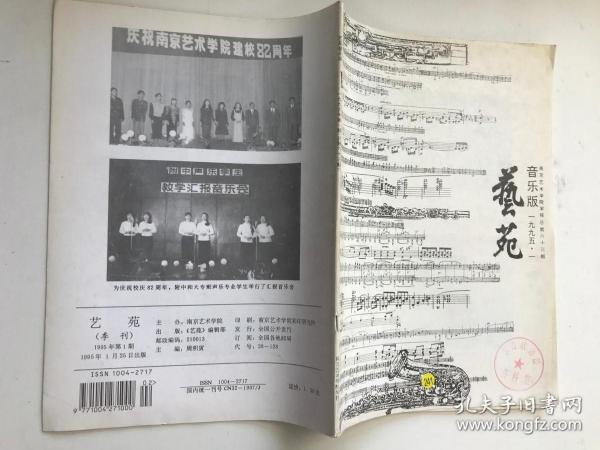 庆祝南京艺术学院建校82周年
附中声乐学生
教学汇报音乐会
为庆祝校庆82周年，附中和大专班声乐专业学生举行了汇报音乐会
艺 苑
（季 刊）
1995年第1期
1995年1月25日出版
主 办：南京艺术学院
出 版：《艺苑》编辑部
邮政编码：210013
主 编：周积寅
发 行：全国公开发行
订 阅：全国各地邮局
代 号：28-128
ISSN 1004-2717
02>
9 771004 271000
ISSN 1004-2717
国内统一刊号CN32-1397/J
藝苑
音乐版
一九九五·一
南京艺术学院学报总第六十三期
241
孔夫子旧书网
www.kongfz.com